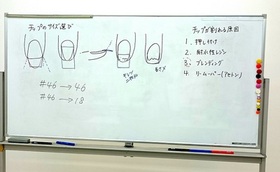 チップのサイズ選び
#46 → 46
#46 → 18
チップが割れる原因
1. 押し付け
2. 耐水性レジン
3. ブレンディング
4. リムーバー(アセトン)